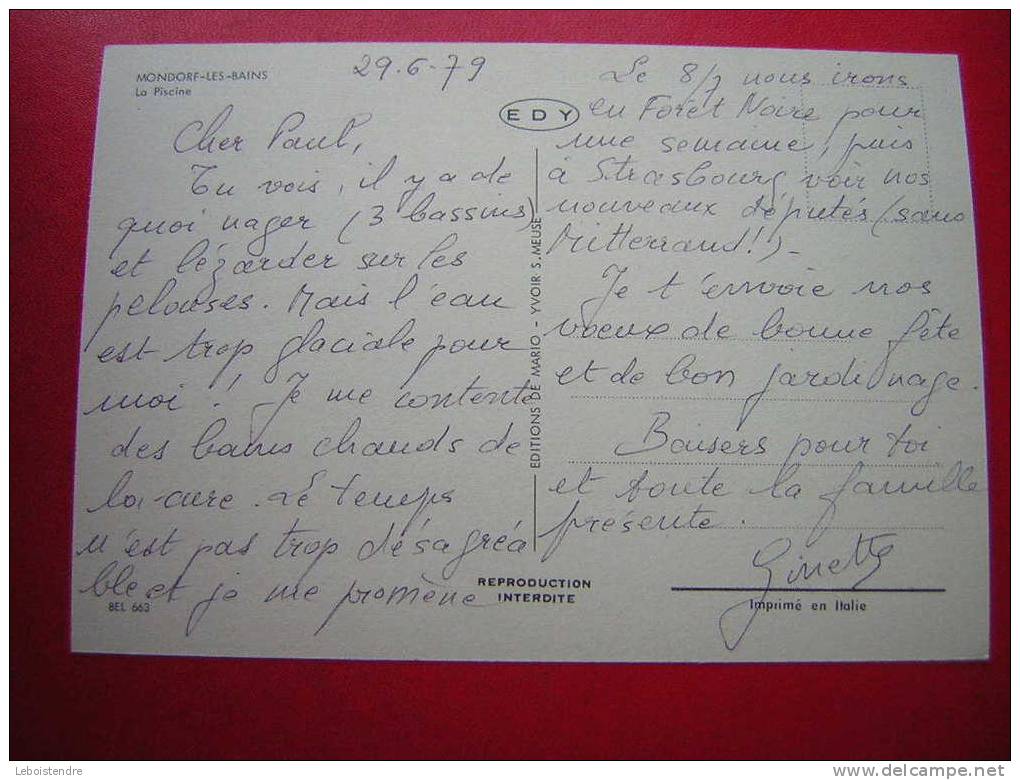 MONDORF-LES-BAINS
La Piscine
29.6-79
Cher Paul,
Tu vois, il y a de
quoi nager (3 bassins)
et lézarder sur les
pelouses. Mais l'eau
est trop glaciale pour
moi! Je me contente
des bains chauds de
la cure. Le temps
n'est pas trop désagréa
ble et je me promène
BEL 663
EDY
EDITIONS DE MARIO - YVOIR S. MEUSE
REPRODUCTION
INTERDITE
Le 8/7 nous irons
en Forêt Noire pour
une semaine, puis
à Strasbourg voir nos
nouveaux députés (sans
Mitterrand!)-
Je t'envoie nos
voeux de bonne fête
et de bon jardinage.
Baisers pour toi
et toute la famille
présente.
Ginette
Imprimé en Italie
Leboistendre
delcampe.net